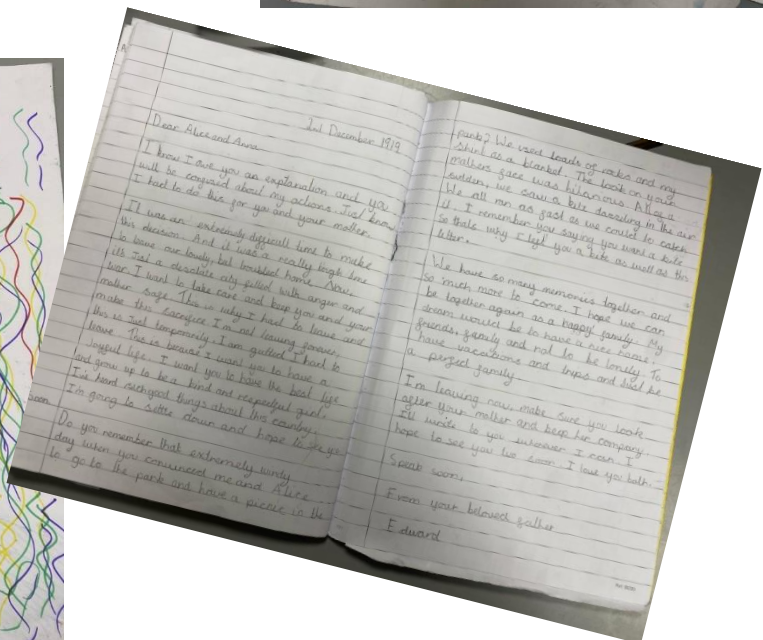 2nd December 1919
Dear Alice and Anna
I know I owe you an explanation and you
will be confused about my actions. Just know
I had to do this for you and your mother.
It was an extremely difficult time to make
this decision. And it was a really tough time
to leave our lovely but troubled home. Now,
it's just a desolate city filled with anger and
war. I want to take care and keep you and your
mother safe. This is why I had to leave and
make this sacrifice I'm not leaving forever,
this is just temporarily. I am gutted I had to
leave. This is because I want you to have a
joyful life. I want you to have the best life
and grow up to be a kind and respectful girl.
I've heard such good things about this country.
I'm going to settle down and hope to see you
soon
Do you remember that extremely windy
day when you convinced me and Alice
to go to the park and have a picnic in the
park? We used loads of rocks and my
shirt as a blanket. The look on your
mothers face was hilarious. All of a
sudden, we saw a kite dazzling in the air
We all ran as fast as we could to catch
it. I remember you saying you want a kite
so thats why I left you a kite as well as this
letter.
We have so many memories together and
so much more to come. I hope we can
be together again as a happy family. My
dream would be to have a nice home,
friends, family and not to be lonely. To
have vacations and trips and just be
a perfect family
I'm leaving now, make sure you look
after your mother and keep her company.
I'll write to you whenever I can. I
hope to see you two soon. I love you both.
Speak soon,
From your beloved father
Edward